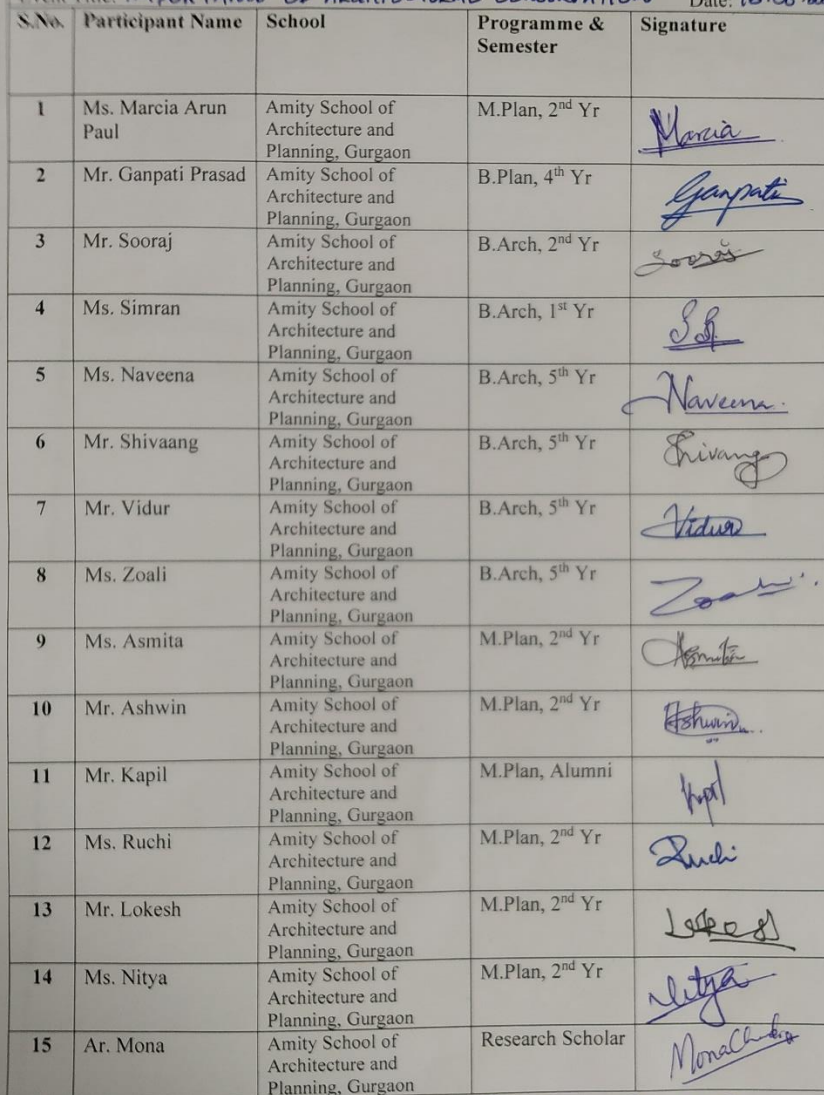 S.No. Participant Name School Programme & Semester Signature
1 Ms. Marcia Arun Paul Amity School of Architecture and Planning, Gurgaon M.Plan, 2nd Yr Marcia
2 Mr. Ganpati Prasad Amity School of Architecture and Planning, Gurgaon B.Plan, 4th Yr Ganpati
3 Mr. Sooraj Amity School of Architecture and Planning, Gurgaon B.Arch, 2nd Yr Sooraj
4 Ms. Simran Amity School of Architecture and Planning, Gurgaon B.Arch, 1st Yr
5 Ms. Naveena Amity School of Architecture and Planning, Gurgaon B.Arch, 5th Yr Naveena.
6 Mr. Shivaang Amity School of Architecture and Planning, Gurgaon B.Arch, 5th Yr Shivang
7 Mr. Vidur Amity School of Architecture and Planning, Gurgaon B.Arch, 5th Yr Vidur
8 Ms. Zoali Amity School of Architecture and Planning, Gurgaon B.Arch, 5th Yr Zoali
9 Ms. Asmita Amity School of Architecture and Planning, Gurgaon M.Plan, 2nd Yr Asmita
10 Mr. Ashwin Amity School of Architecture and Planning, Gurgaon M.Plan, 2nd Yr Ashwin
11 Mr. Kapil Amity School of Architecture and Planning, Gurgaon M.Plan, Alumni Kapil
12 Ms. Ruchi Amity School of Architecture and Planning, Gurgaon M.Plan, 2nd Yr Ruchi
13 Mr. Lokesh Amity School of Architecture and Planning, Gurgaon M.Plan, 2nd Yr
14 Ms. Nitya Amity School of Architecture and Planning, Gurgaon M.Plan, 2nd Yr Nitya
15 Ar. Mona Amity School of Architecture and Planning, Gurgaon Research Scholar Mona Chandra